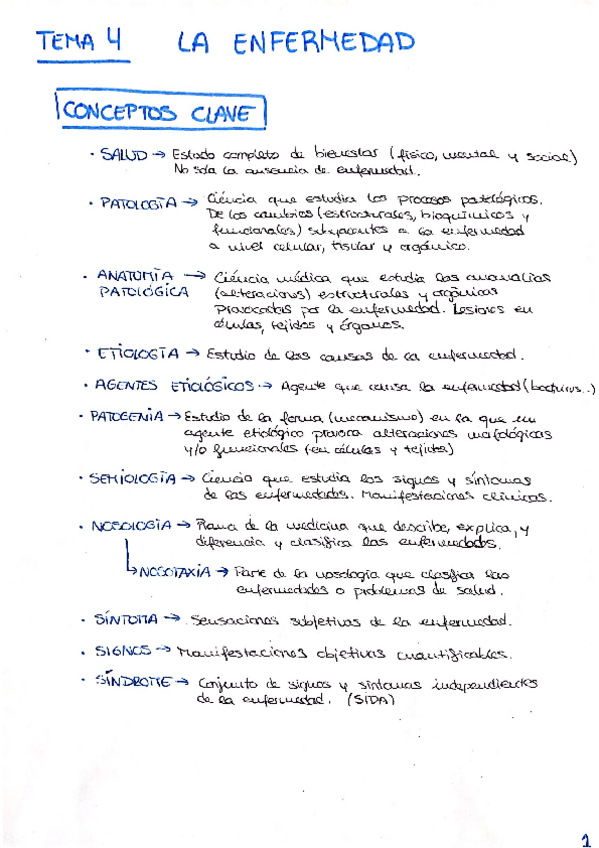 TEMA 4 LA ENFERMEDAD
CONCEPTOS CLAVE
· SALUD → Estado completo de bienestar (físico, mental y social)
No solo la ausencia de enfermedad.
· PATOLOGÍA → Ciencia que estudia los procesos patológicos.
De los cambios (estructurales, bioquímicos y
funcionales) subyacentes a la enfermedad
a nivel celular, tisular y orgánico.
· ANATOMÍA → Ciencia médica que estudia las anomalías
PATOLÓGICA (alteraciones) estructurales y orgánicas
provocadas por la enfermedad. Lesiones en
células, tejidos y órganos.
· ETIOLOGÍA → Estudio de las causas de la enfermedad.
· AGENTES ETIOLÓGICOS → Agente que causa la enfermedad (bact virus..)
· PATOGENIA → Estudio de la forma (mecanismo) en la que un
agente etiológico provoca alteraciones morfológicas
y/o funcionales (en células y tejidos)
· SEMIOLOGÍA → Ciencia que estudia los signos y síntomas
de las enfermedades. Manifestaciones clínicas.
· NOSOLOGÍA → Rama de la medicina que describe, explica, y
diferencia y clasifica las enfermedades.
↳ NOSOTAXIA → Parte de la nosología que clasifica las
enfermedades o problemas de salud.
· SÍNTOMA → Sensaciones subjetivas de la enfermedad.
· SIGNOS → Manifestaciones objetivas cuantificables.
· SÍNDROME → Conjunto de signos y síntomas independientes
de la enfermedad. (SIDA)
1